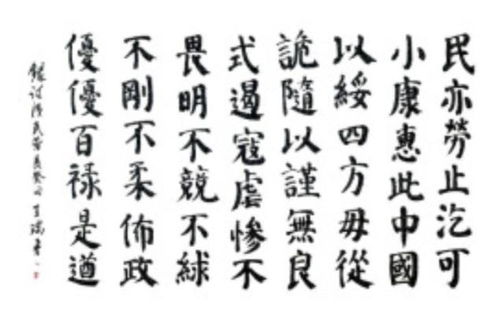 民亦勞止汔可
小康惠此中國
以綏四方毋從
詭隨以謹無良
式遏寇虐慘不
畏明不競不絿
不剛不柔佈政
優優百禄是遒